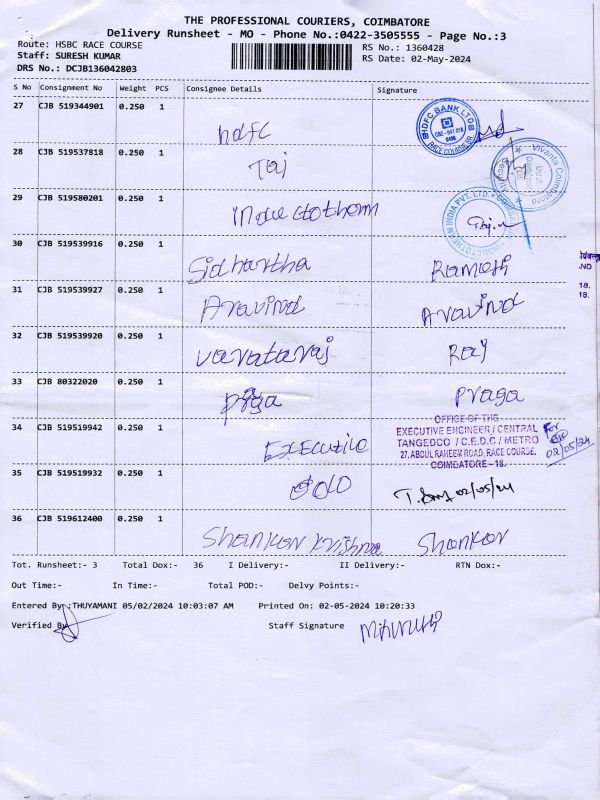 THE PROFESSIONAL COURIERS, COIMBATORE
Delivery Runsheet - MO - Phone No.:0422-3505555 - Page No.:3
Route: HSBC RACE COURSE
RS No.: 1360428
Staff: SURESH KUMAR
RS Date: 02-May-2024
DRS No.: DCJB136042803
S No Consignment No Weight PCS Consignee Details Signature
27 CJB 519344901 0.250 1 hdfc
HDFC BANK LTD
RACE COURSE BR.
28 CJB 519537818 0.250 1 Taj
Vivanta Coimbatore
29 CJB 519580201 0.250 1 Inductotherm
INDUCTOTHERM INDIA PVT. LTD.
30 CJB 519539916 0.250 1 Sidhartha Ramesh
31 CJB 519539927 0.250 1 Aravind Aravind
32 CJB 519539920 0.250 1 varataraj Raj
33 CJB 80322020 0.250 1 praga praga
34 CJB 519519942 0.250 1 Executive
OFFICE OF THE
EXECUTIVE ENGINEER / CENTRAL
TANGEDCO / C.E.D.C / METRO
27, ABDUL RAHEEM ROAD, RACE COURSE,
COIMBATORE - 18.
For
02/05/24
35 CJB 519519932 0.250 1 02/05/24
36 CJB 519612400 0.250 1 Shankar Krishna Shankar
.ND
18.
18.
Tot. Runsheet:- 3 Total Dox:- 36 I Delivery:- II Delivery:- RTN Dox:-
Out Time:- In Time:- Total POD:- Delvy Points:-
Entered By :THUYAMANI 05/02/2024 10:03:07 AM Printed On: 02-05-2024 10:20:33
Verified By Staff Signature